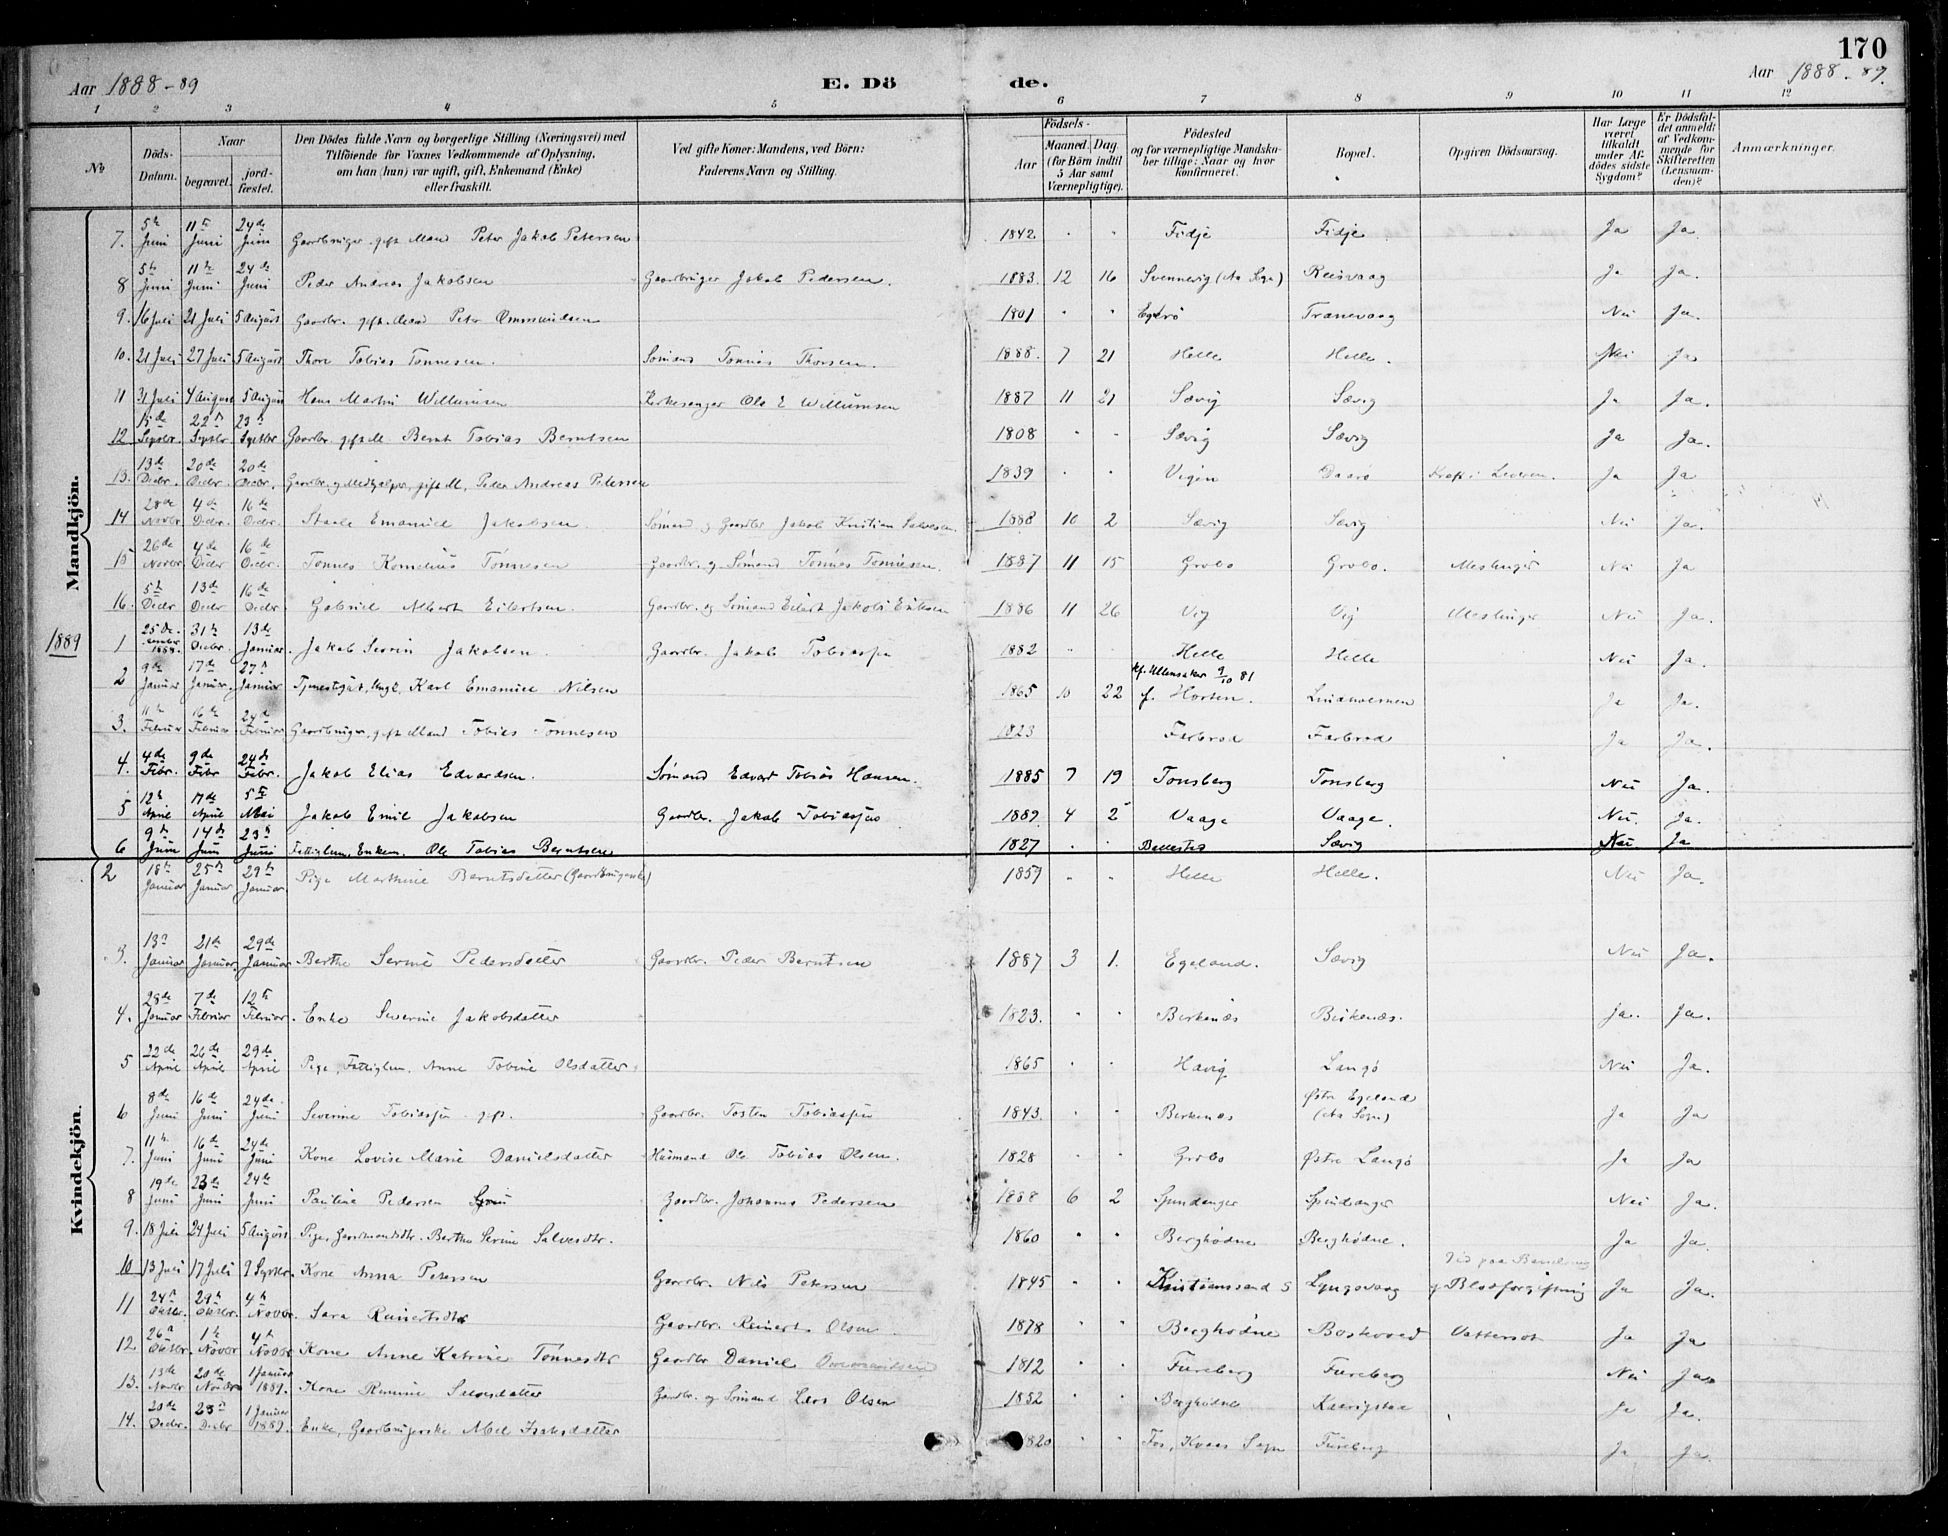 170
Aar 1888-89 E. Dö de. Aar 1888-89.
1 2 3 4 5 6 7 8 9 10 11 12
No
Döds-Datum.
Naar begravet. jordfæstet.
Den Dödes fulde Navn og borgerlige Stilling (Næringsvei) med Tilföiende for Voxnes Vedkommende af Oplysning, om han (hun) var ugift, gift, Enkemand (Enke) eller fraskilt.
Ved gifte Koner: Mandens, ved Börn: Faderens Navn og Stilling.
Födsels-
Aar Maaned. Dag. (for Börn indtil 5 Aar samt Værnepligtige).
Födested og for værnepligtige Mandskaber tillige: Naar og hvor konfirmeret.
Bopæl.
Opgiven Dödsaarsag.
Har Læge været tilkaldt under Afdödes sidste Sygdom?
Er Dödsfaldet anmeldt af Vedkommende for Skifteretten (Lensmanden)?
Anmærkninger.
Mandkjön.
7. 5te Juni 11te Juni 24de Juni Gaardbruger gift Mand Peter Jakob Petersen 1842 " " Fidje Fidje Ja Ja
8 5te Juni 11te Juni 24de Juni Peder Andreas Jakobsen Gaardbruger Jakob Pedersen. 1883. 12 16 Svennevig (Aa Sogn) Reisvaag Ja Ja.
9. 16 Juli 21 Juli 5 August Gaardbr. gift Mand Peter Ommundsen 1801 " " Egerö Tranevaag Nei Ja.
10. 21 Juli 27 Juli 5 August Thore Tobias Tönnesen. Sömand Tönnes Thorsen. 1888. 7 21 Helle Helle. Nei Ja
11 31 Juli 4 August 5 August Hans Martin Willumsen Kirkesanger Ole E Willumsen 1887 11 21 Sævig Sævig Ja Ja.
12 15de Septbr. 22de Septbr 23de Septbr Gaardbr. gift M. Bernt Tobias Berntsen 1808 " " Sævig Sævig Ja Ja.
13. 13de Decbr. 20de Decbr. 20de Decbr. Gaardbr. og Medhjælper, gift M, Peder Andreas Pedersen 1839 " " Vigen Daarö Kræft i Leveren. Ja Ja
14 28de Novbr 4de Decbr. 16de Decbr. Staale Emanuel Jakobsen. Sömand og Gaardbr Jakob Kristian Salvesen. 1888 10 2 Sævig Sævig Nei Ja.
15 26de Novbr. 4de Decbr 16de Decbr. Tönnes Kornelius Tönnesen Gaardbr. og Sömand Tönnes Tönnesen. 1887 11 15 Grobo Grobo. Meslinger Nei Ja
16. 5te Decbr 13de Decbr 16de Decbr Gabriel Albert Eilertsen. Gaardbr. og Sömand Eilert Jakob Eriksen 1886 11 26 Vig Vig Meslinger Nei Ja.
1889
1 25de ember 1888. 31te Decbr. 13de Januar. Jakob Severin Jakobsen. Gaardbr. Jakob Tobiassen 1882 " " Helle Helle Nei Ja.
2 9de Januar 17de Januar. 27de Januar Tjenestegut, Ungk. Karl Emanuel Nilsen 1865 10 22 kf. Ullensaker 9/10 81 f. Horten. Lindholmen Ja Ja.
3. 11te Februar 16de Februar 24de Februar Gaardbruger, gift Mand Tobias Tönnesen 1823 Farbrod Farbrod Ja Ja.
4. 4de Febr. 9de Febr 24de Febr. Jakob Elias Edvardsen. Sömand Edvart Tobias Hansen. 1885 7 19 Tonsberg Tonsberg Nei Ja.
5 12te April 17de April 5te Mai Jakob Emil Jakobsen Gaardbr. Jakob Tobiassen 1889. 4 2 Vaage Vaage. Nei. Ja.
6 9de Juni 14de Juni 23de Juni Fattiglem, Enkem. Ole Tobias Berntsen 1827 " " Sævig Nei Ja
Kvindekjön.
2 18de Januar 25de Januar 29de Januar Pige Marthine Berntsdatter (Gaardbrugerske) 1859 " " Helle Helle. Nei Ja.
3. 13de Januar 21de Januar. 29de Januar Berthe Serine Pedersdatter Gaardbr. Peder Berntsen 1887 3 1. Egeland. Sævig Nei Ja.
4. 28de Januar 7de Februar 12te Februar. Enke Severine Jakobsdatter 1823. " " Birkenæs Birkenæs. Ja. Ja.
5 22de April 26de April 29de April Pige, Fattiglem, Anne Tobine Olsdatter 1865 " " Hævig Langö Nei Ja.
6 8de Juni 16de Juni 24de Juni Severine Tobiassen gift. Gaardbr. Tosten Tobiassen 1843. " " Birkenæs Östre Egeland (Aa Sogn) Ja Ja
7. 11te Juni 16de Juni 24de Juni Kone Lovise Marie Danielsdatter Husmand Ole Tobias Olsen. 1828 " " Grobo Östre Langö Ja Ja
8 19de Juni 23de Juni 24de Juni Pauline Pedersen Gaardbr. Johannes Pedersen 1888 6 2 Spindanger Spindanger Nei Ja.
9. 18 Juli 24 Juli 5 August Pige, Gaardmandsdtr. Berthe Serine Salvesdtr. 1860 " " Berghödne Berghödne. Ja Ja.
10 13 Juli 17 Juli 9 Septbr. Kone Anna Petersen Gaardbr. Nils Petersen 1845 " " Kristianssand S Lyngsvaag Död paa Barselseng g. Blodforgiftning Ja Ja.
11 24de Oktbr. 29de Oktbr. 4de Novbr. Sara Reinertsdtr Gaardbr. Reinert Olsen 1878 " " Berghödne Boskoved Vattersot Ja Ja
12. 26de Oktbr. 1te Novbr 4de Novbr Kone Anne Katrine Tönnesdtr Gaardbr Daniel Ommundsen 1812 " " Fureberg Fureberg Nei Ja
13. 13de Novbr 20de Novbr 1 Januar 1889. Kone Gaardbr. og Sömand Lars Olsen 1832 " " Berghödne Ja Ja.
14. 20de Decbr. 28de Decbr 1 Januar 1889. Enke, Gaardbrugerske Abel Isaksdatter 1820 " " Fos, Kvaas Sogn Fureberg Ja Ja